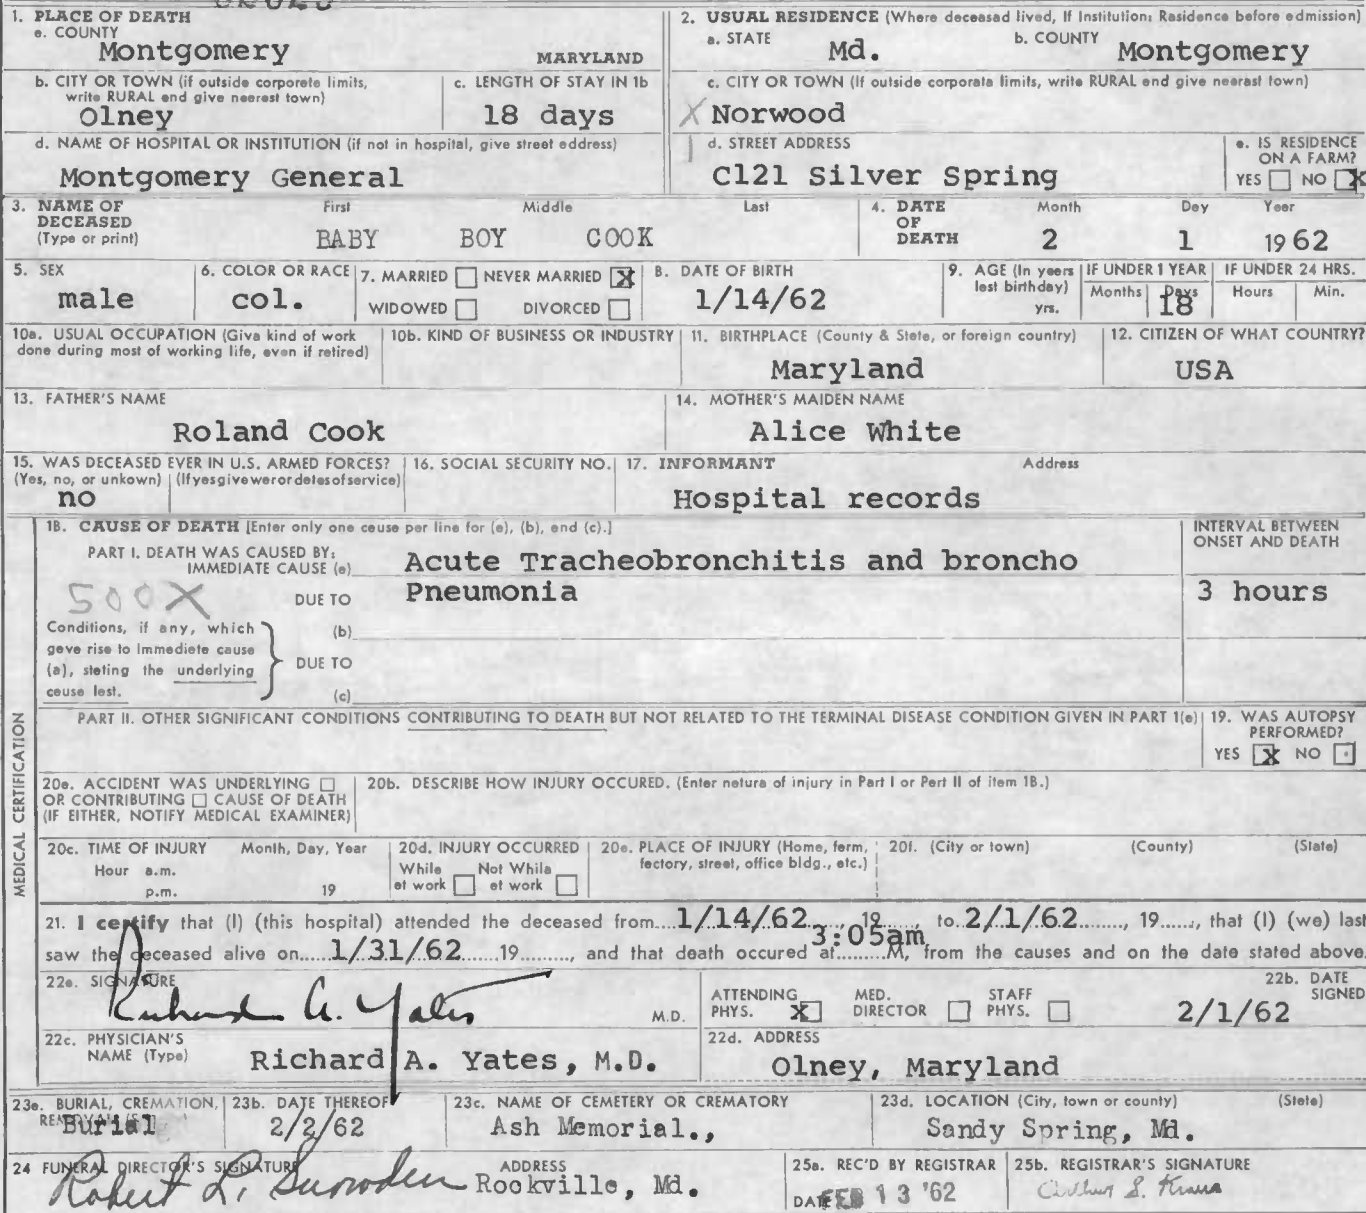 1. PLACE OF DEATH
a. COUNTY
Montgomery MARYLAND
2. USUAL RESIDENCE (Where deceased lived, If Institution: Residence before admission)
a. STATE Md. b. COUNTY Montgomery
b. CITY OR TOWN (if outside corporate limits, write RURAL and give nearest town)
Olney
c. LENGTH OF STAY IN 1b
18 days
c. CITY OR TOWN (If outside corporate limits, write RURAL and give nearest town)
X Norwood
d. NAME OF HOSPITAL OR INSTITUTION (if not in hospital, give street address)
Montgomery General
d. STREET ADDRESS
Cl21 Silver Spring
e. IS RESIDENCE ON A FARM?
YES NO X
3. NAME OF DECEASED (Type or print)
First Middle Last
BABY BOY COOK
4. DATE OF DEATH
Month Day Year
2 1 1962
5. SEX
male
6. COLOR OR RACE
col.
7. MARRIED NEVER MARRIED X
WIDOWED DIVORCED
8. DATE OF BIRTH
1/14/62
9. AGE (In years last birthday)
yrs.
IF UNDER 1 YEAR
Months Days
18
IF UNDER 24 HRS.
Hours Min.
10a. USUAL OCCUPATION (Give kind of work done during most of working life, even if retired)
10b. KIND OF BUSINESS OR INDUSTRY
11. BIRTHPLACE (County & State, or foreign country)
Maryland
12. CITIZEN OF WHAT COUNTRY?
USA
13. FATHER'S NAME
Roland Cook
14. MOTHER'S MAIDEN NAME
Alice White
15. WAS DECEASED EVER IN U.S. ARMED FORCES?
(Yes, no, or unkown) (If yes give war or dates of service)
no
16. SOCIAL SECURITY NO.
17. INFORMANT Address
Hospital records
18. CAUSE OF DEATH [Enter only one cause per line for (a), (b), and (c).]
INTERVAL BETWEEN ONSET AND DEATH
PART I. DEATH WAS CAUSED BY:
IMMEDIATE CAUSE (a) Acute Tracheobronchitis and broncho
500X DUE TO Pneumonia 3 hours
Conditions, if any, which gave rise to Immediate cause (a), stating the underlying cause last.
(b)
DUE TO
(c)
MEDICAL CERTIFICATION
PART II. OTHER SIGNIFICANT CONDITIONS CONTRIBUTING TO DEATH BUT NOT RELATED TO THE TERMINAL DISEASE CONDITION GIVEN IN PART 1(a)
19. WAS AUTOPSY PERFORMED?
YES X NO
20a. ACCIDENT WAS UNDERLYING
OR CONTRIBUTING CAUSE OF DEATH
(IF EITHER, NOTIFY MEDICAL EXAMINER)
20b. DESCRIBE HOW INJURY OCCURED. (Enter nature of injury in Part I or Part II of item 18.)
20c. TIME OF INJURY Month, Day, Year
Hour a.m.
p.m. 19
20d. INJURY OCCURRED
While at work Not While at work
20e. PLACE OF INJURY (Home, farm, factory, street, office bldg., etc.)
20f. (City or town) (County) (State)
21. I certify that (I) (this hospital) attended the deceased from 1/14/62, 19, to 2/1/62, 19, that (I) (we) last
saw the deceased alive on 1/31/62 19, and that death occured at 3:05am M, from the causes and on the date stated above.
22a. SIGNATURE
Richard A. Yates M.D.
ATTENDING PHYS. X MED. DIRECTOR STAFF PHYS.
22b. DATE SIGNED
2/1/62
22c. PHYSICIAN'S NAME (Type)
Richard A. Yates, M.D.
22d. ADDRESS
Olney, Maryland
23a. BURIAL, CREMATION,
Burial
23b. DATE THEREOF
2/2/62
23c. NAME OF CEMETERY OR CREMATORY
Ash Memorial.,
23d. LOCATION (City, town or county) (State)
Sandy Spring, Md.
24 FUNERAL DIRECTOR'S SIGNATURE
Robert L. Snowden
ADDRESS
Rockville, Md.
25a. REC'D BY REGISTRAR
DATE FEB 13 '62
25b. REGISTRAR'S SIGNATURE
Arthur S. Kraus